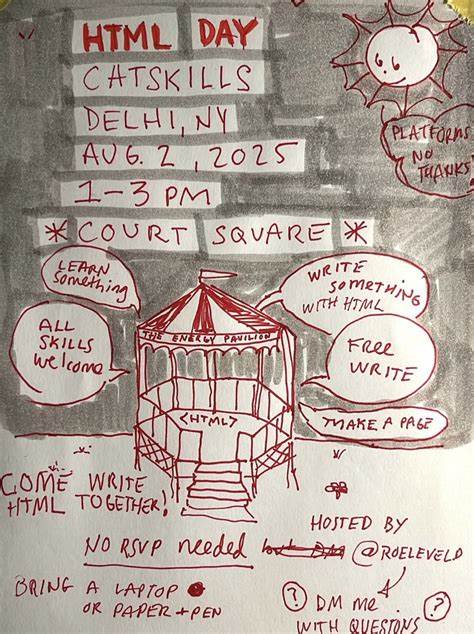 HTML DAY
CATSKILLS
DELHI, NY
AUG. 2, 2025
1-3 PM
* COURT SQUARE *
PLATFORMS
NO
THANKS
LEARN
something
WRITE
SOMETHING
WITH HTML
ALL
SKILLS
welcome
THE ENERGY PAVILION
FREE
WRITE
<HTML>
MAKE A PAGE
COME WRITE
HTML TOGETHER!
HOSTED BY
@ROELEVELD
NO RSVP needed
BRING A LAPTOP
OR PAPER + PEN
? DM me ?
WITH QUESTIONS